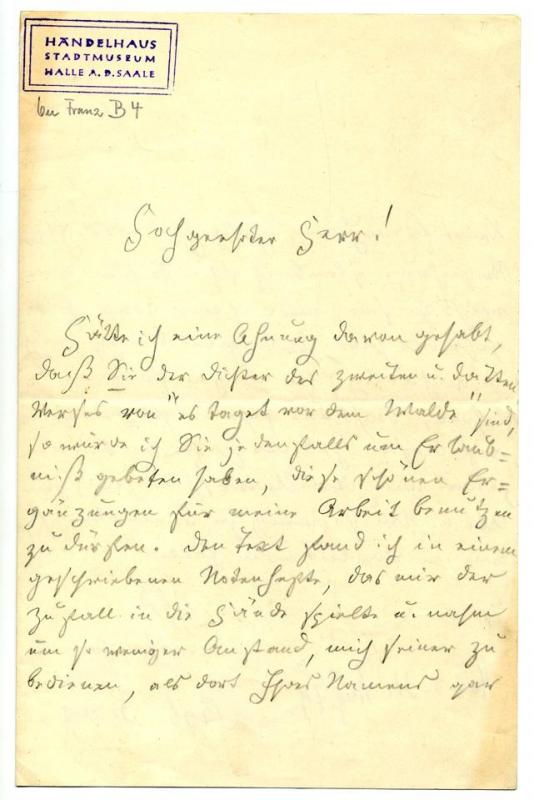 HÄNDELHAUS
STADTMUSEUM
HALLE A. D. SAALE
bei Franz B 4
Hochgeehrter Herr!
Hätte ich eine Ahnung davon gehabt,
daß Sie der Dichter des zweiten u. dritten
Verses von "es taget vor dem Walde" sind,
so würde ich Sie jedenfalls um Erlaub=
niß gebeten haben, diese schönen Er=
gänzungen für meine Arbeit benutzen
zu dürfen. Den Text fand ich in einem
geschriebenen Notenhefte, das mir der
Zufall in die Hände spielte u. nahm
um so weniger Anstand, mich seiner zu
bedienen, als dort Ihres Namens gar